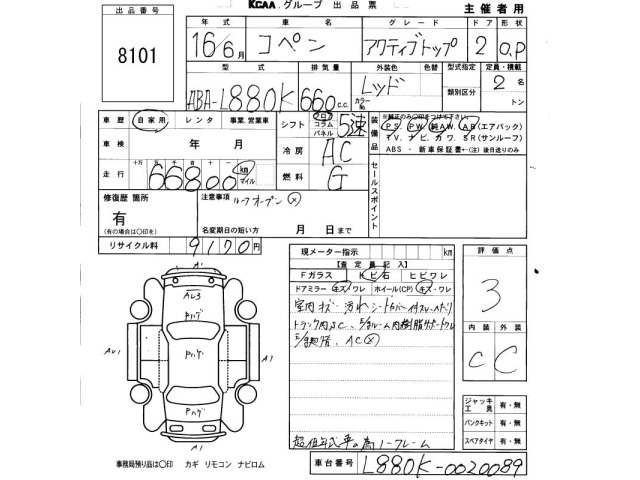 KCAA グループ 出品票
主催者用
出品番号
8101
年式 車名 グレード ドア 形状
16/6月 コペン アクティブトップ 2 O.P
型式 排気量 外装色 色替 型式指定 定員・積載
ABA-L880K 660 c.c. レッド カラーNo. 類別区分 2名
トン
車歴 自家用 レンタ 事業、営業車
シフト フロア コラム パネル 5速
装備品
※純正のみ〇印をつけて下さい。
PS. PW. 純AW. AB (エアバック)
TV. ナビ. カワ. SR (サンルーフ)
ABS・新車保証書←(注)後日送りのみ
車検 年 月
冷房 AC
走行 十万 万 千 百 十 一
66800 km マイル
燃料 G
セールスポイント
修復歴 箇所
有
(有の場合は〇印を)
注意事項 ルーフオープン ×
名変期日の短い方 月 日まで
リサイクル料 9170円
現メーター指示 km
【査定員記入】
Fガラス 飛び石 ヒビワレ
ドアミラー キズ/ワレ ホイール(CP) キズ・ワレ
AC×
超低年式車の為ノークレーム
車台番号 L880K-0020089
評価点
3
内装 外装
C C
ジャッキ 工具 有・無
パンクキット 有・無
スペアタイヤ 有・無
A1
AU3
Pハゲ
AU1
Pハゲ
A1
Pハゲ
A1
事務局預り品は〇印 カギ リモコン ナビロム